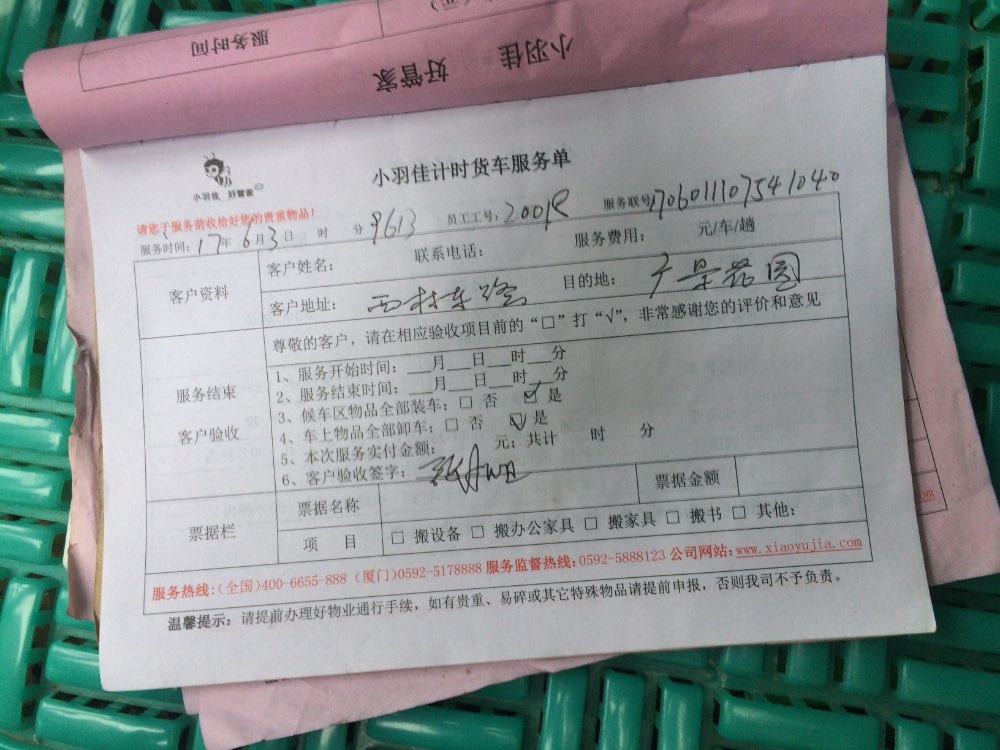 服务时间
小羽佳 好管家
小羽佳 好管家
小羽佳计时货车服务单
请您于服务前收拾好您的贵重物品！
服务时间：17年6月3日 时 分 9613 员工工号：2001R 服务联号170601107541040
客户资料
客户姓名： 联系电话： 服务费用： 元/车/趟
客户地址： 目的地：
尊敬的客户，请在相应验收项目前的“□”打“√”，非常感谢您的评价和意见
服务结束
客户验收
1、服务开始时间：___月___日___时___分
2、服务结束时间：___月___日___时___分
3、候车区物品全部装车：□ 否 ☑ 是
4、车上物品全部卸车：□ 否 ☑ 是
5、本次服务实付金额： 元；共计 时 分
6、客户验收签字：
票据栏
票据名称 票据金额
项 目 □ 搬设备 □ 搬办公家具 □ 搬家具 □ 搬书 □ 其他：
服务热线：(全国)400-6655-888 (厦门)0592-5178888 服务监督热线：0592-5888123 公司网站：www.xiaoyujia.com
温馨提示：请提前办理好物业通行手续，如有贵重、易碎或其它特殊物品请提前申报，否则我司不予负责。
com